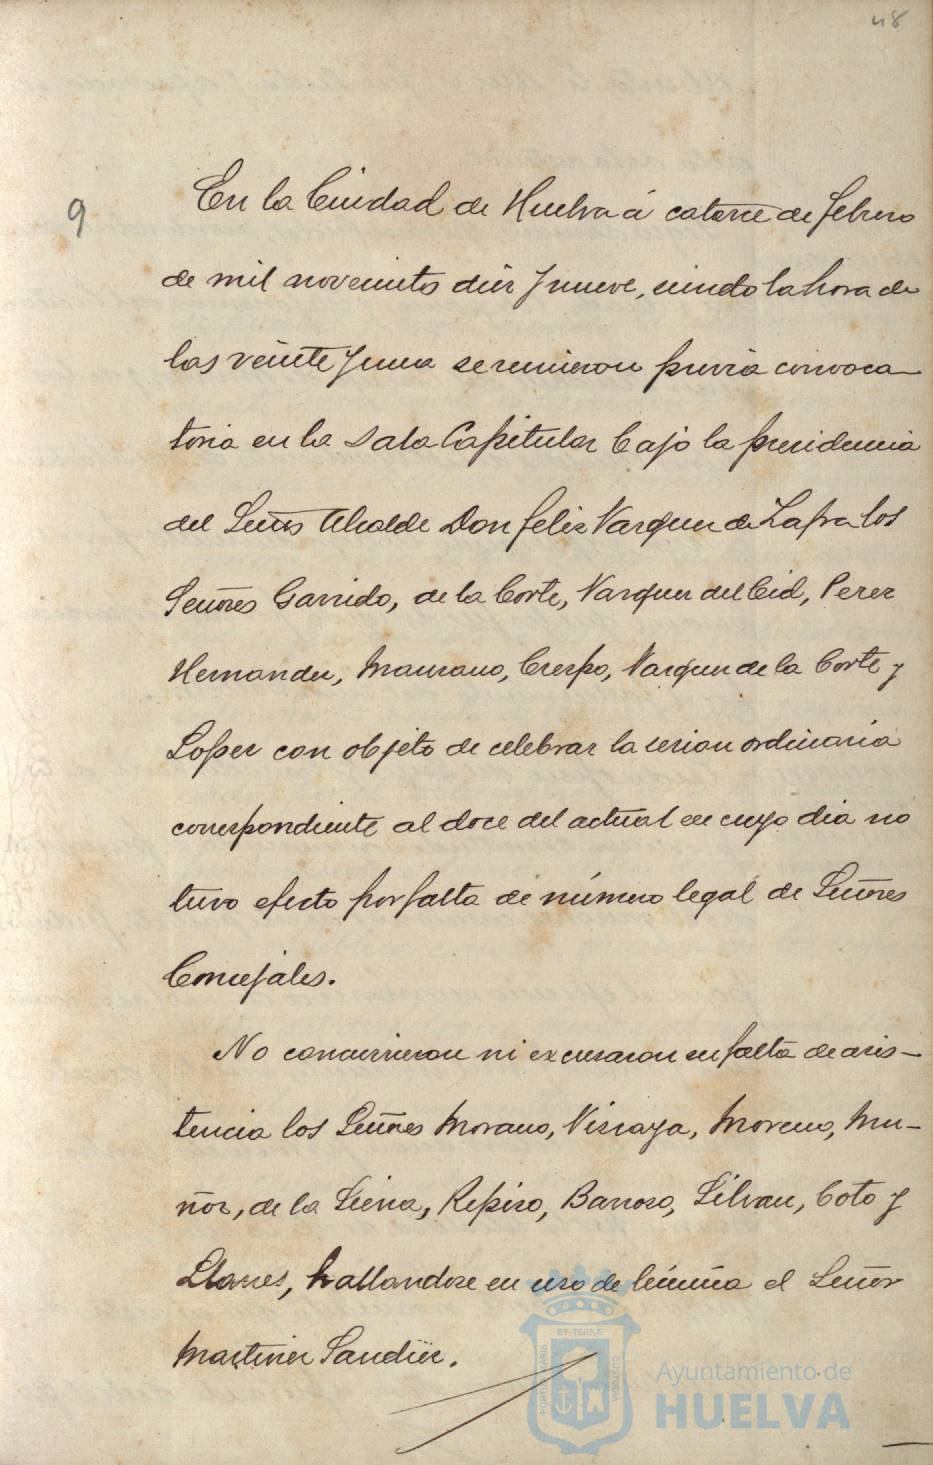 48
9
En la Ciudad de Huelva á catorce de febrero
de mil novecientos diez y nueve, siendo la hora de
las veinte y una se reunieron previa convoca-
toria en la Sala Capitular bajo la presidencia
del Señor Alcalde Don Felix Vazquez de Zafra los
Señores Garrido, de la Corte, Vazquez del Cid, Perez
Hernandez, Manzano, Crespo, Vazquez de la Corte y
Lopez con objeto de celebrar la sesion ordinaria
correspondiente al doce del actual en cuyo dia no
tuvo efecto por falta de número legal de Señores
Concejales.
No concurrieron ni excusaron su falta de asis-
tencia los Señores Morano, Vizcaya, Moreno, Mu-
ñoz, de la Sierra, Repiso, Barroso, Silvan, Coto y
Llanes, hallandose en uso de licencia el Señor
Martinez Sanchez.
ET TERRÆ
PORTUS MARIS
CUSTODIA
Ayuntamiento de
HUELVA